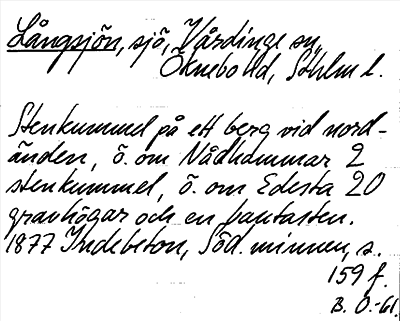 Långsjön, sjö, Vårdinge sn,
Öknebo hd, Sthlm l.
Stenkummel på ett berg vid nord-
änden, ö. om Nådhammar 2
stenkummel, ö. om Edesta 20
gravhögar och en fantasten.
1877 Indebetou, Söd. minnen, s.
159 f.
B. O.-61.